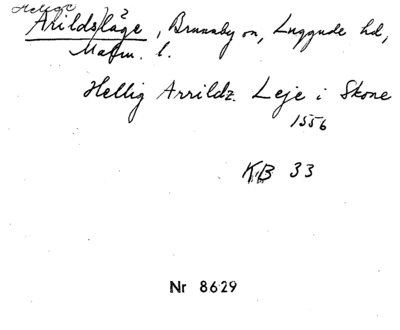 Helige
Arildsläge, Brunnby sn, Luggude hd,
Malm. l.
Hellig Arrildz. Leje i Skone
1556
KB 33
Nr 8629